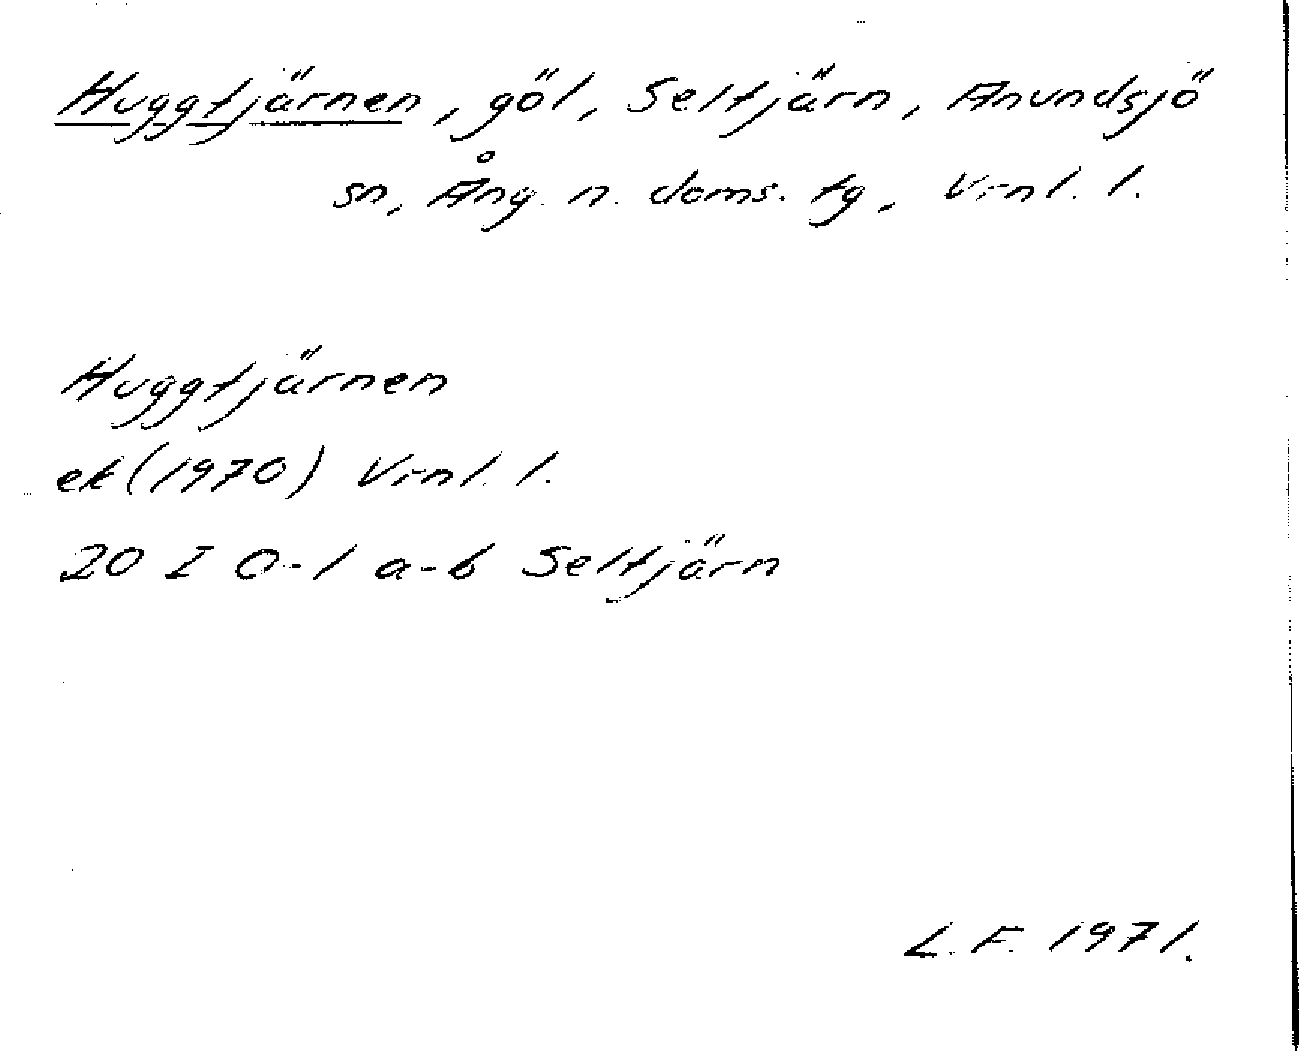 Huggtjärnen, göl, Seltjärn, Anundsjö
sn, Ång. n. doms. tg, Vrnl. l.
Huggtjärnen
ek (1970) Vrnl. l.
20 I 0-1 a-b Seltjärn
L. F. 1971.